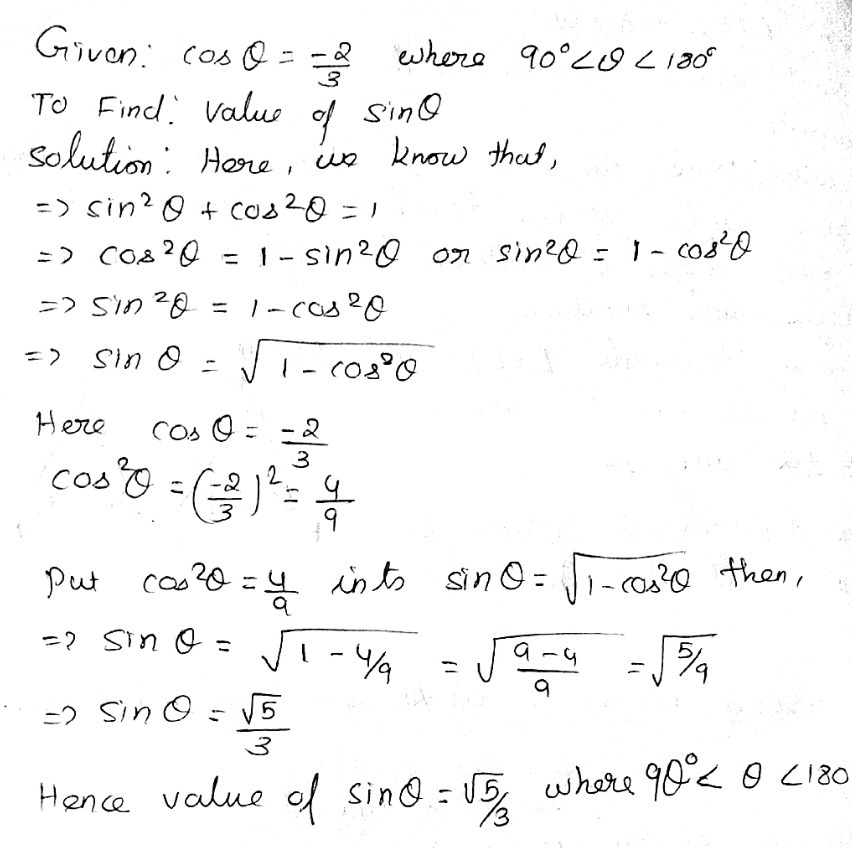 Given: cos θ = -2/3 where 90° < θ < 180°
To Find: value of sinθ
solution: Here, we know that,
=> sin² θ + cos² θ = 1
=> cos² θ = 1 - sin² θ or sin² θ = 1 - cos² θ
=> sin² θ = 1 - cos² θ
=> sin θ = √(1 - cos² θ)
Here cos θ = -2/3
cos² θ = (-2/3)² = 4/9
Put cos² θ = 4/9 into sin θ = √(1 - cos² θ) then,
=> sin θ = √(1 - 4/9) = √((9-4)/9) = √(5/9)
=> sin θ = √5/3
Hence value of sin θ = √5/3 where 90° < θ < 180